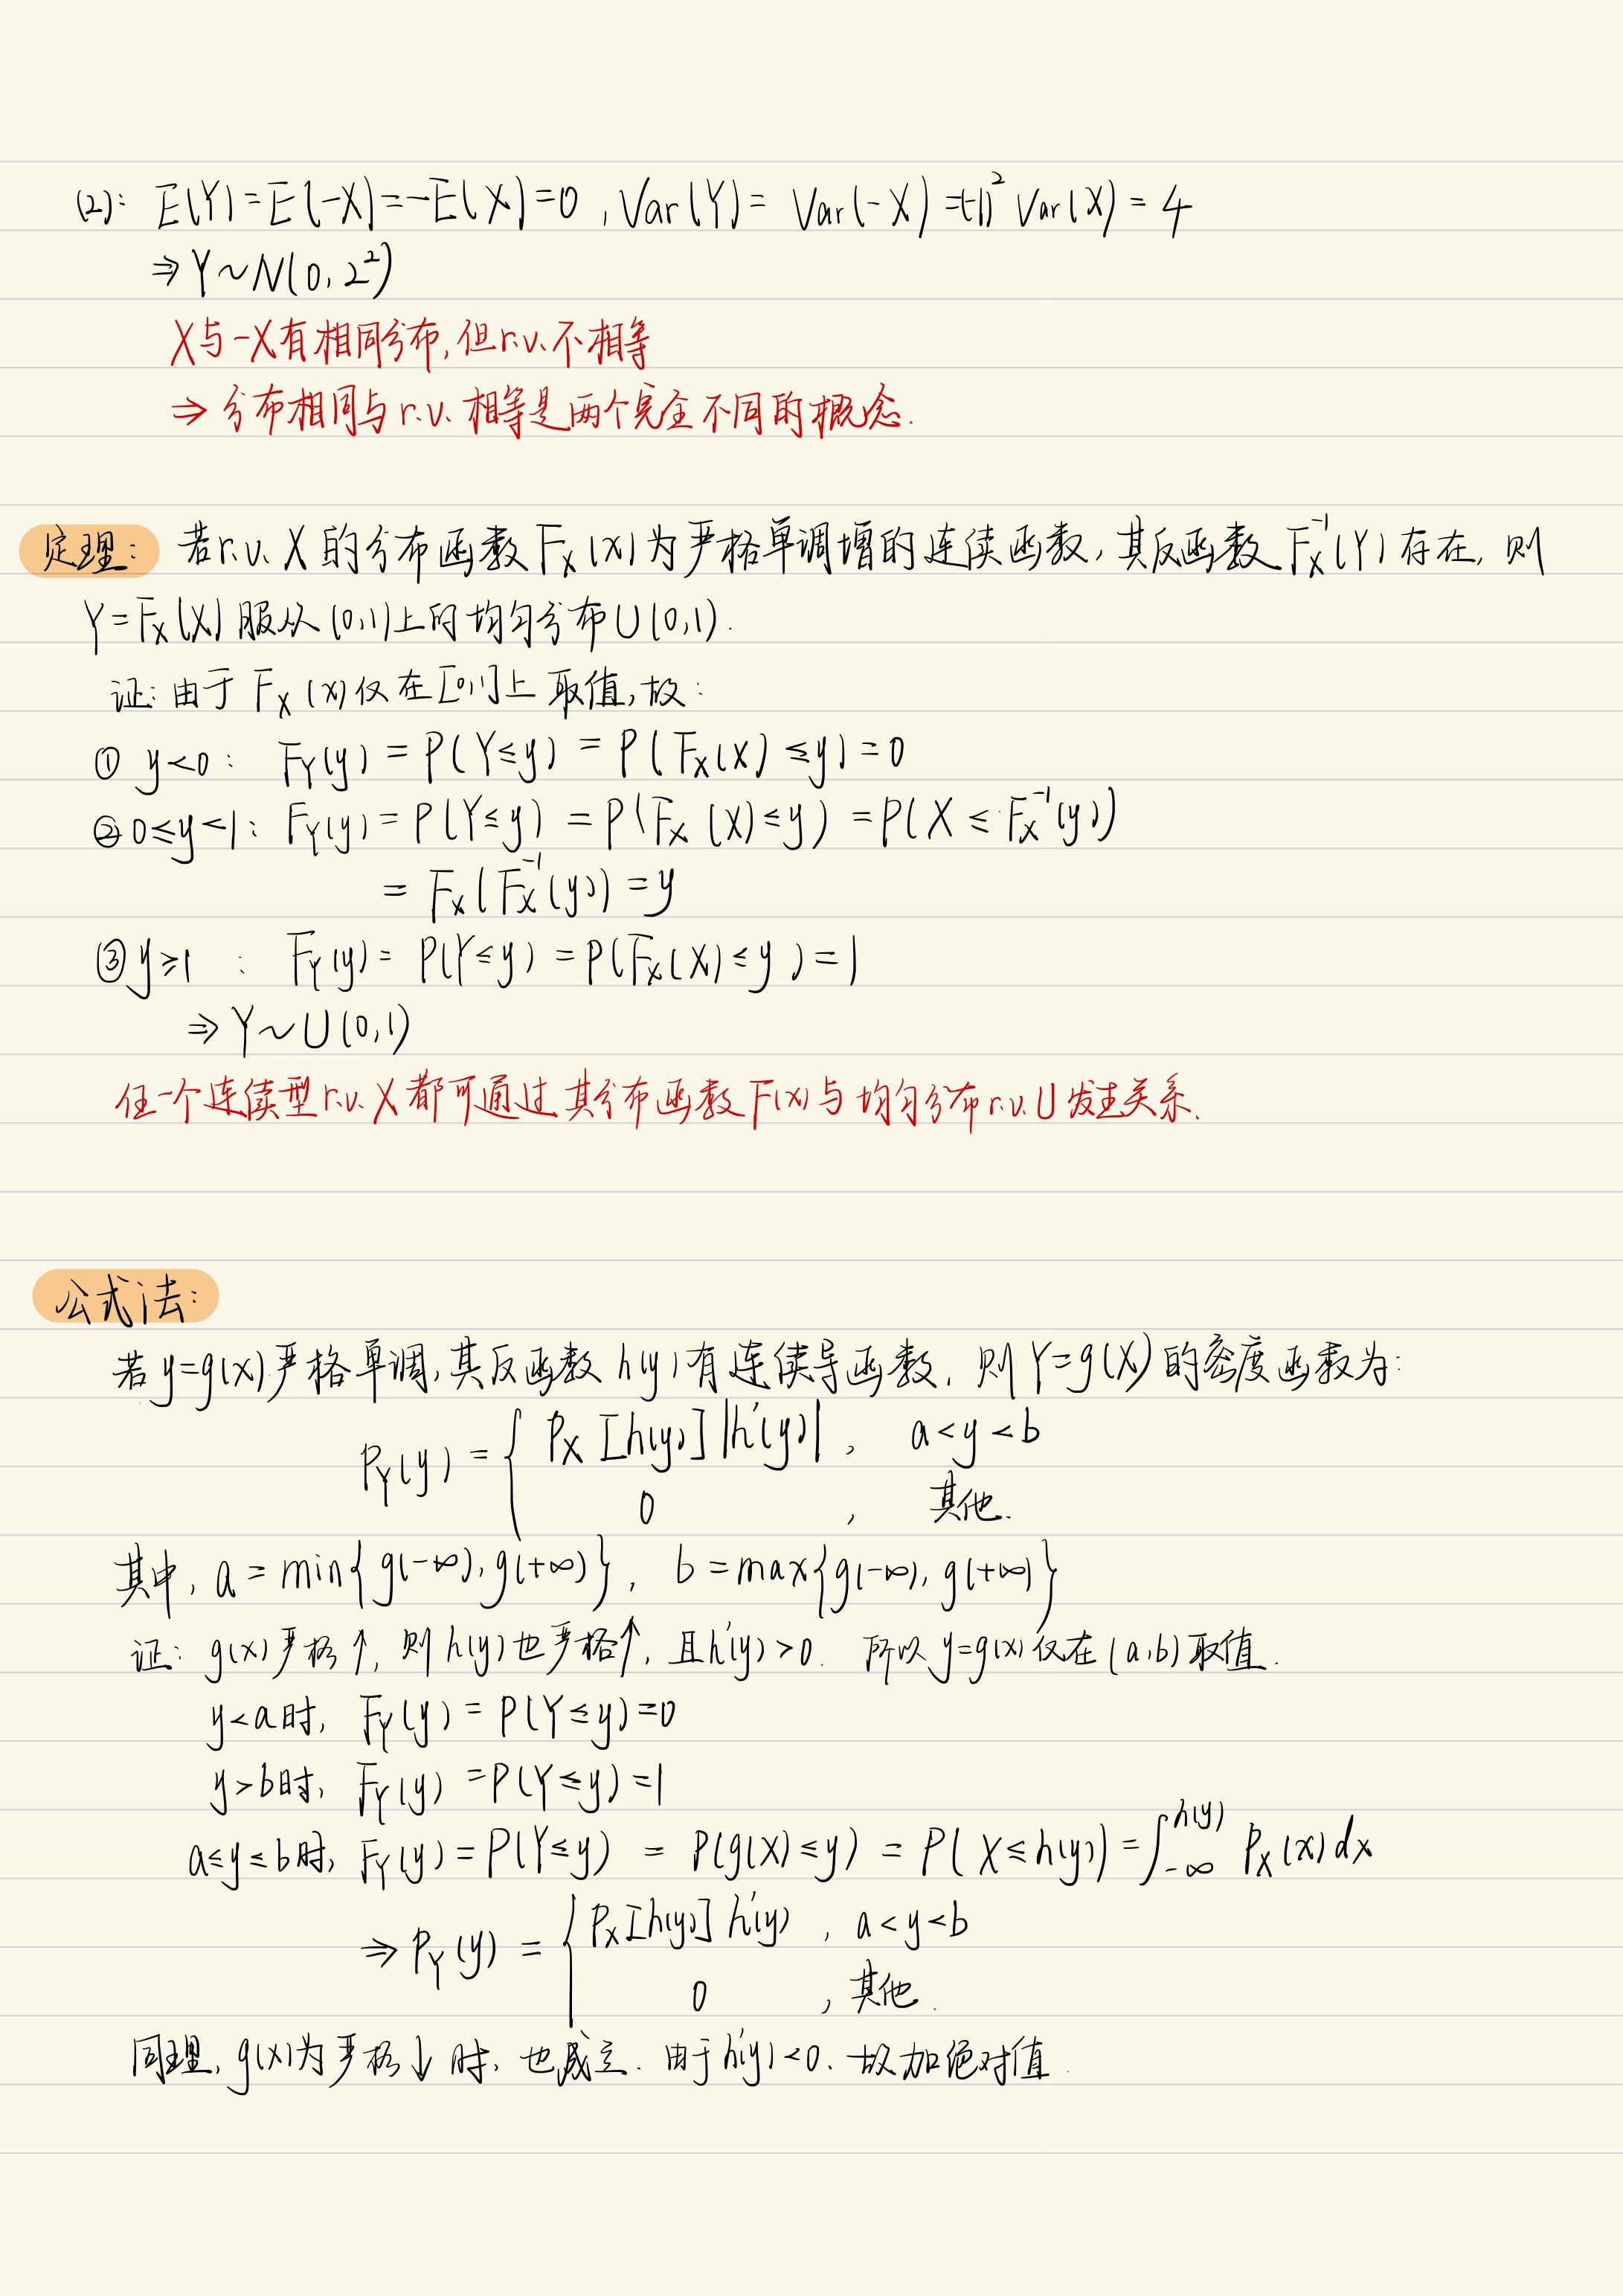 (2): E(Y)=E(-X)=-E(X)=0, Var(Y)= Var(-X)=(-1)² Var(X)=4
⇒ Y~N(0, 2²)
X与-X有相同分布,但r.v.不相等
⇒ 分布相同与r.v.相等是两个完全不同的概念.
定理: 若r.v. X的分布函数F_X(x)为严格单调增的连续函数,其反函数F_X⁻¹(Y)存在,则
Y=F_X(X)服从(0,1)上的均匀分布U(0,1).
证:由于 F_X(x)仅在[0,1]上取值,故:
① y<0: F_Y(y)=P(Y≤y)=P(F_X(X)≤y)=0
② 0≤y<1: F_Y(y)=P(Y≤y)=P(F_X(X)≤y)=P(X≤F_X⁻¹(y))
=F_X(F_X⁻¹(y))=y
③ y≥1: F_Y(y)=P(Y≤y)=P(F_X(X)≤y)=1
⇒ Y~U(0,1)
任一个连续型r.v. X都可通过其分布函数F(x)与均匀分布r.v. U发生关系.
公式法:
若y=g(x)严格单调,其反函数h(y)有连续导函数,则Y=g(X)的密度函数为:
P_Y(y)={ P_X[h(y)]|h'(y)|, a<y<b
0, 其他.
其中, a=min{g(-∞),g(+∞)}, b=max{g(-∞),g(+∞)}
证: g(x)严格↑,则h(y)也严格↑,且h'(y)>0. 所以y=g(x)仅在(a,b)取值.
y<a时, F_Y(y)=P(Y≤y)=0
y>b时, F_Y(y)=P(Y≤y)=1
a≤y≤b时, F_Y(y)=P(Y≤y)=P(g(X)≤y)=P(X≤h(y))=∫_{-∞}^{h(y)} P_X(x)dx
⇒ P_Y(y)={ P_X[h(y)]h'(y), a<y<b
0, 其他.
同理, g(x)为严格↓时,也成立.由于h'(y)<0.故加绝对值.